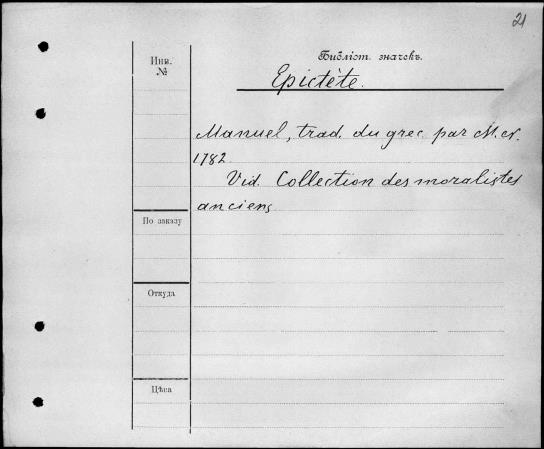 21
Библіот. значекъ.
Инв.
№
Epictète.
Manuel, trad. du grec par M. N.
1782
Vid. Collection des moralistes
anciens
По заказу
Откуда
Цѣна